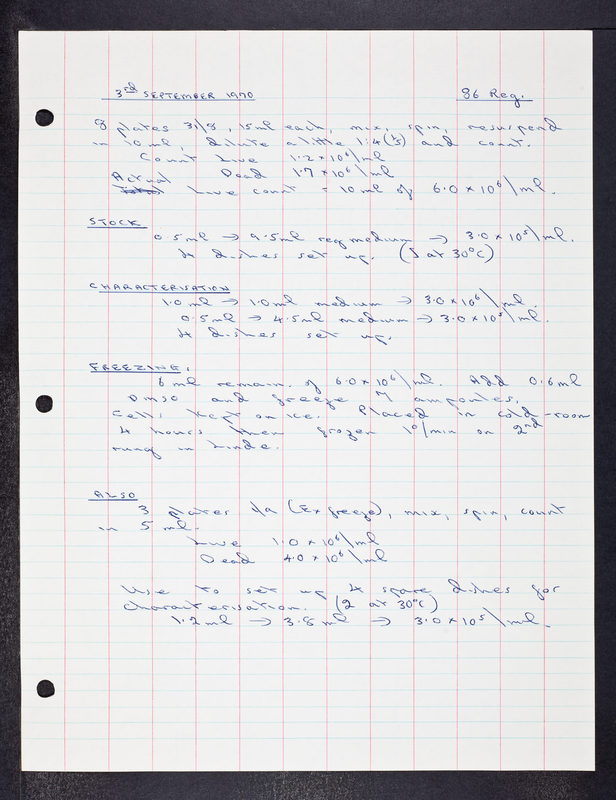 3rd SEPTEMBER 1970 86 Reg.
8 plates 31/8, 15ml each, mix, spin, resuspend
in 10ml, dilute a little 1:4 (1/5) and count.
Count Live 1.2 × 10⁶/ml
Actual Dead 1.7 × 10⁶/ml
Live count = 10 ml of 6.0 × 10⁶/ml.
STOCK
0.5ml → 9.5ml reg medium → 3.0 × 10⁵/ml.
4 dishes set up. ( at 30°C)
CHARACTERISATION
1.0 ml → 1.0ml medium → 3.0 × 10⁶/ml.
0.5ml → 4.5ml medium → 3.0 × 10⁵/ml.
4 dishes set up.
FREEZING.
6 ml remain. of 6.0 × 10⁶/ml. Add 0.6ml
DMSO and freeze 7 ampoules.
Cells kept on ice. Placed in cold-room
4 hours then frozen 1°/min on 2nd
rung in Linde.
ALSO
3 plates (Ex freeze), mix, spin, count
in 5 ml.
Live 1.0 × 10⁶/ml
Dead 4.0 × 10⁶/ml
Use to set up 4 spare dishes for
characterisation. (2 at 30°C)
1.2ml → 3.8 ml → 3.0 × 10⁵/ml.